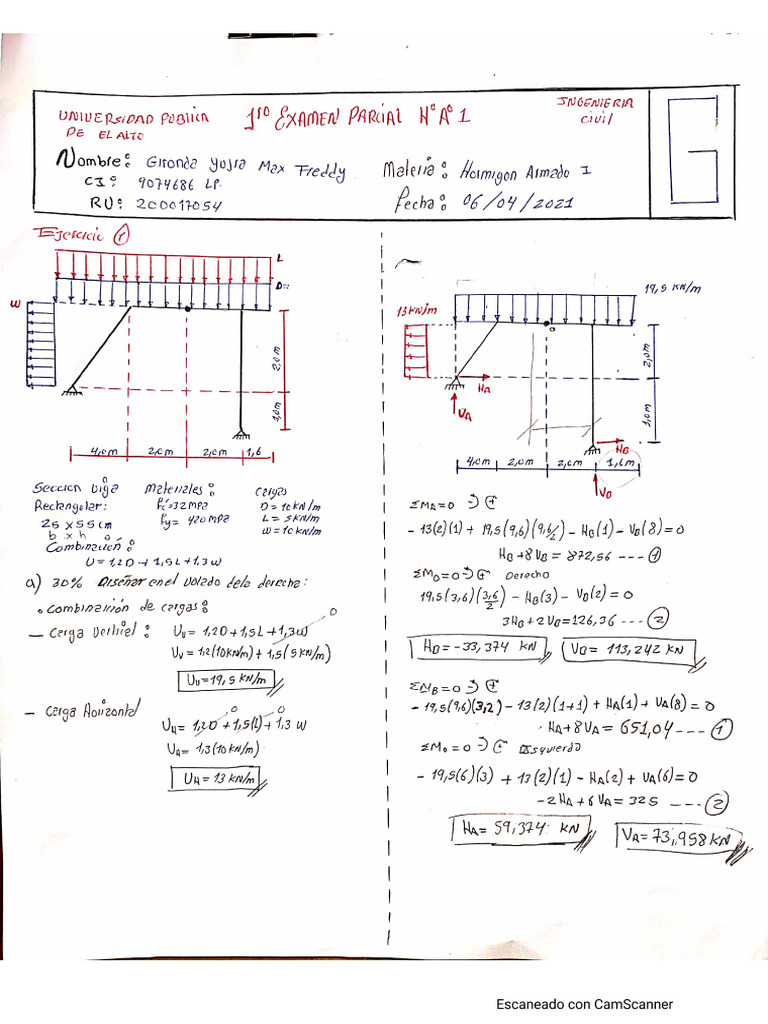 UNIVERSIDAD PUBLICA
DE EL ALTO
1ro EXAMEN PARCIAL N° A° 1
INGENIERIA
Civil
G
Nombre: Gironda Yujra Max Freddy
CI: 9074686 LP.
RU: 200017054
Materia: Hormigon Armado I
Fecha: 06/04/2021
Ejercicio 1
L
D
W
2,0m
1,0m
4,0m 2,0m 2,0m 1,6
Seccion viga
Rectangular:
25 x 55 cm
b x h
Materiales:
f'c=32MPa
Fy= 420MPa
Cargas
D=10kN/m
L=5kN/m
W=10kN/m
Combinación:
U=1,2D+1,5L+1,3W
a) 30% Diseñar en el volado de la derecha:
Combinación de cargas:
— Carga Vertical: Uv= 1,2D+1,5L+1,3W 0
Uv= 1,2(10kN/m)+1,5(5kN/m)
Uv=19,5 kN/m
— Carga Horizontal UH= 1,2D+1,5(L)+1,3 W 0 0
UH= 1,3(10kN/m)
UH=13kN/m
19,5 KN/m
13KN/m
o
HA
VA
HB
VB
2,0m
1,0m
4,0m 2,0m 2,0m 1,6m
ΣMA=0 +
-13(2)(1)+19,5(9,6)(9,6/2)-HB(1)-VB(8)=0
HB+8VB=872,56 ---- 1
ΣMo=0 + Derecho
19,5(3,6)(3,6/2)-HB(3)-VB(2)=0
3HB+2VB=126,36 --- 2
HB=-33,374 KN VB= 113,242 KN
ΣMB=0 +
-19,5(9,6)(3,2)-13(2)(1+1)+HA(1)+VA(8)=0
HA+8VA=651,04 ---- 1
ΣMo=0 + Izquierda
-19,5(6)(3)+13(2)(1)-HA(2)+VA(6)=0
-2HA+6VA=325 ---- 2
HA=59,374 KN VA=73,958KN
Escaneado con CamScanner